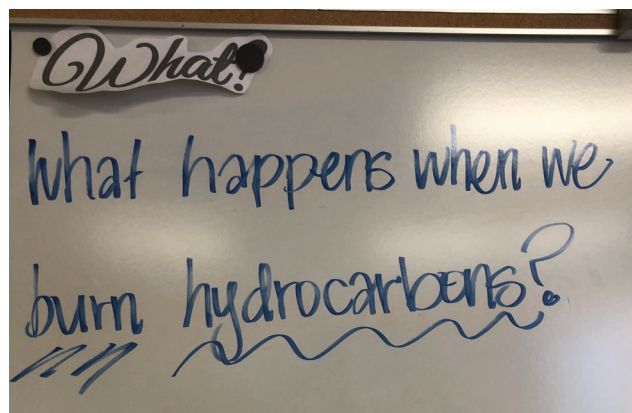 What?
What happens when we
burn hydrocarbons?